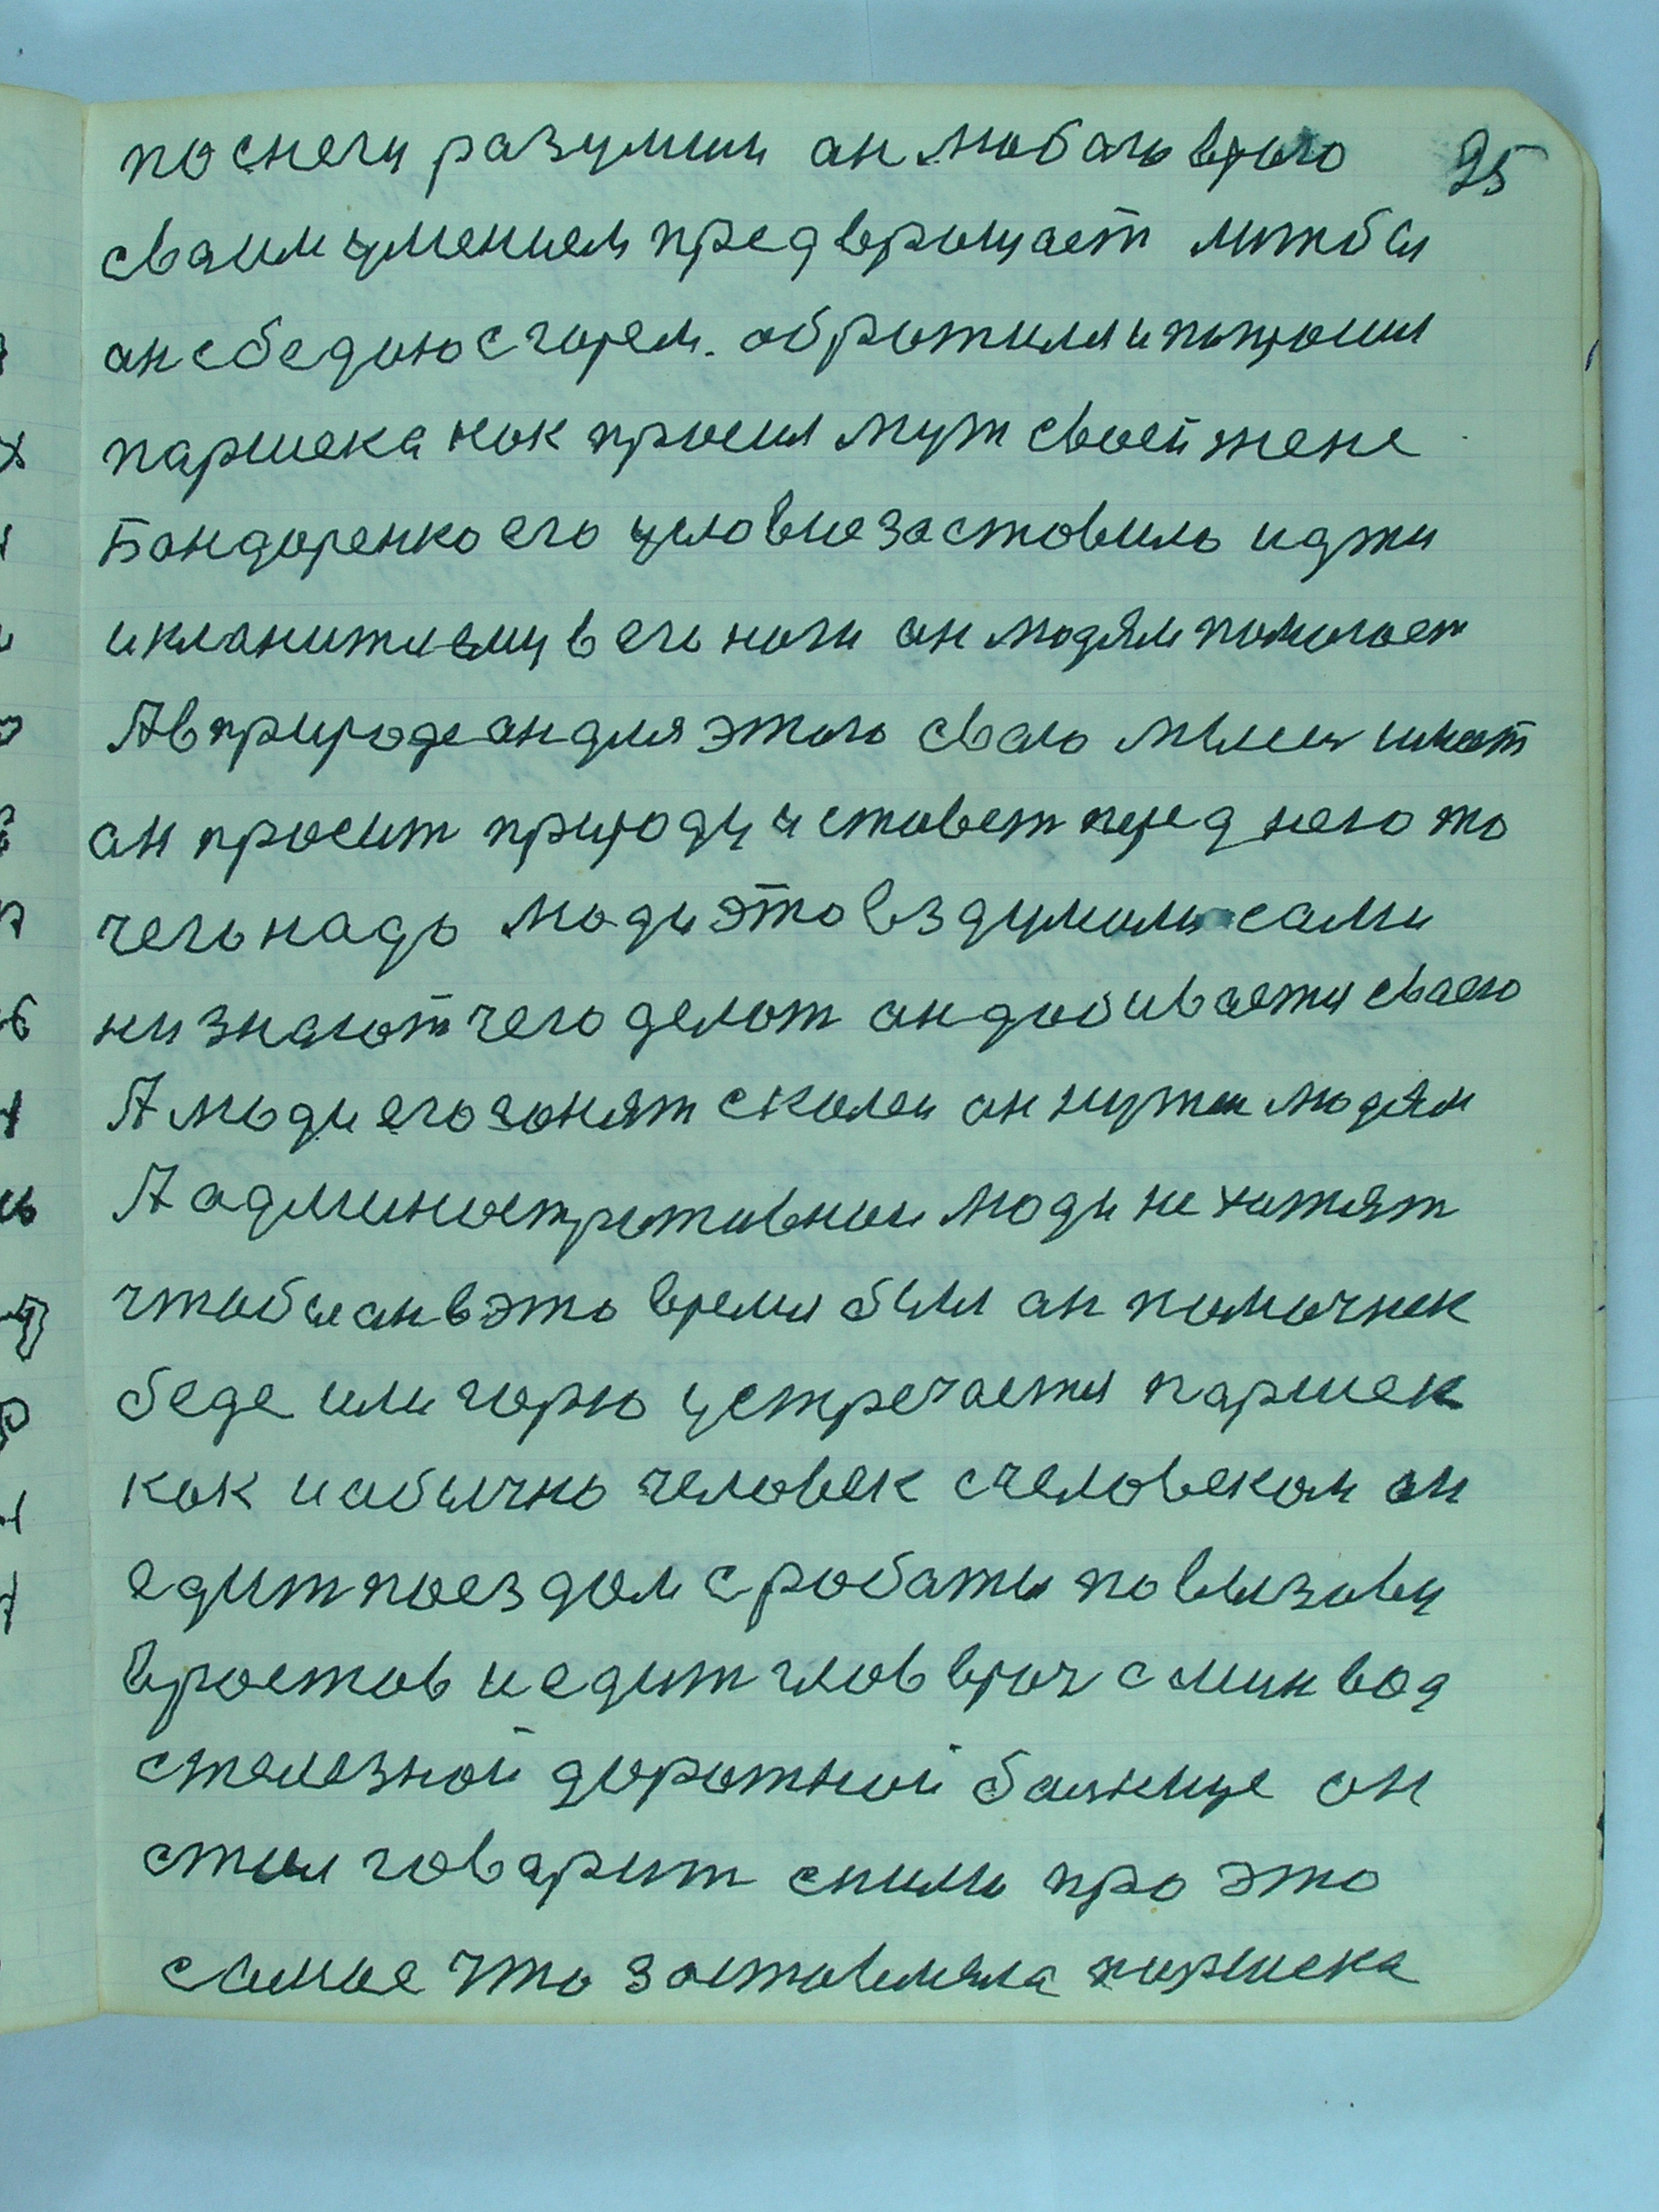 по снегу разумши ан любаго врага 25
сваим умением предврощает лижбы
ан с бедою с горем. обротилси и попросил
паршека как просил муж своей жене
Бондоренко его условие заставило идти
и кланитци ему в его ноги ан людям помогает
А в природе ан для этого сваю мысль имеет
ан просит природу и ставет перед него то
чего надо люди это вздумали сами
ни знают чего делот ан добивается сваего
А люди его гонят сколи ан нужен людям
А административнои люди не хотят
чтобы ан в это время были ан помочник
беде или горю устречается паршек
как и абычно человек счеловеком ан
едит поездом с работы по вызову
в ростов и едит глов врач с мин вод
с железной дорожной больнице он
стал говарит сними про это
самое что заставляла паршека